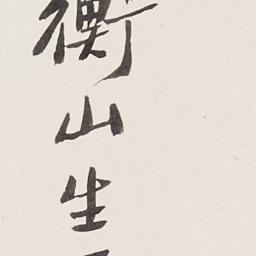 衡山生